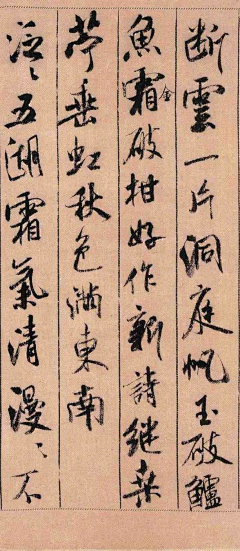 断雲一片洞庭帆玉破鱸
魚霜金破柑好作新詩继桒
苧垂虹秋色滿東南
泛〻五湖霜氣清漫〻不